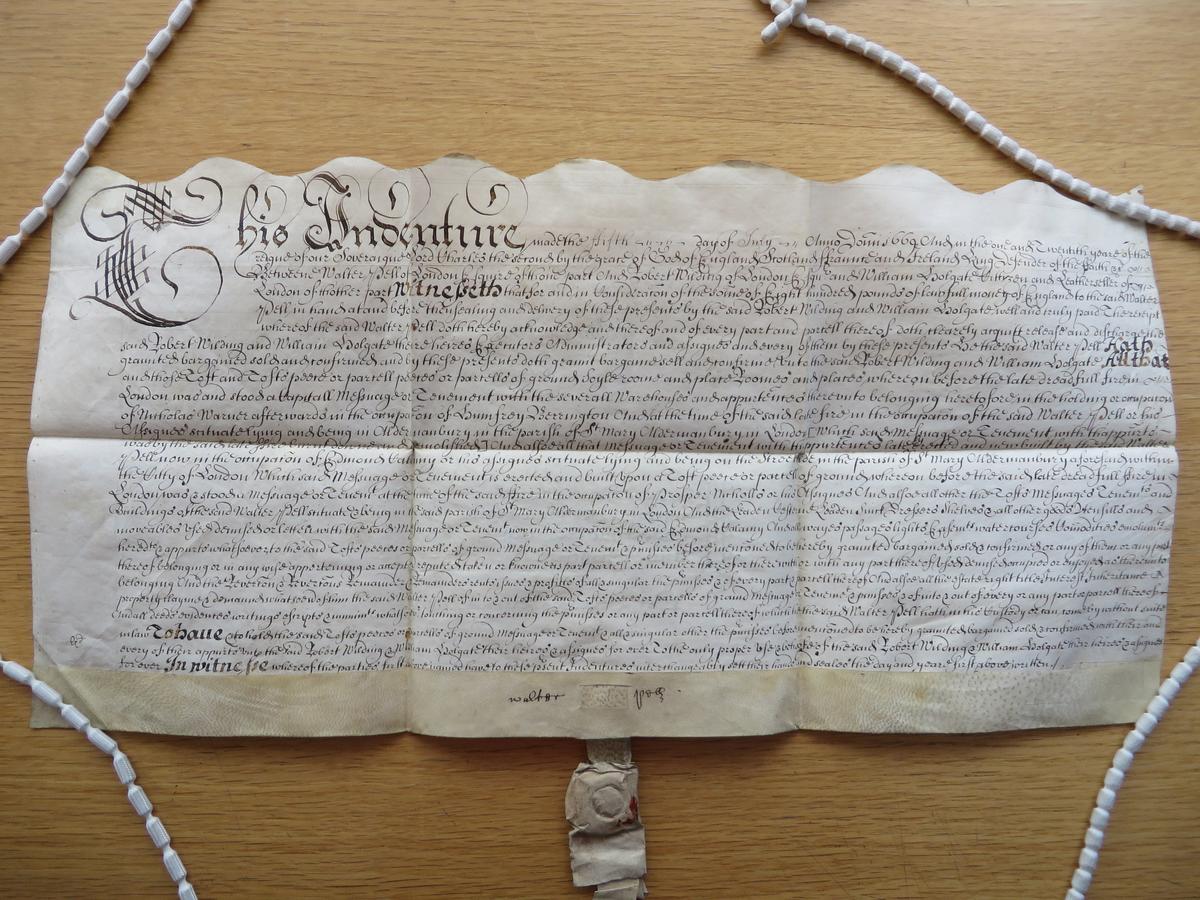 This Indenture made the fifth day of July Anno Dom 1669 And in the one and Twentith yeare of the
reigne of our Soveraigne Lord Charles the second by the grace of God of England Scotland Fraunce and Ireland King Defender of the Faith &c
Betweene Walter Pell of London Esquire of th'one part And Robert Wilding of London and William Holgate Citizen and Leatherseller of
London of th'other part Witnesseth that for and in Consideracon of the some of Eight hundred pounds of lawfull money of England to the said Walter
Pell in hand at and before thensealing and delivery of these presents by the said Robert Wilding and William Holgate well and truly paid The receipt
whereof the said Walter Pell doth hereby acknowledge and thereof and of every part and parcell thereof doth clearely acquitt release and discharge the
said Robert Wilding and William Holgate there heires Executors Administrators and assignes and every of them by these presents He the said Walter Pell Hath
graunted bargained sold and confirmed and by these presents doth graunt bargaine sell and confirme unto the said Robert Wilding and William Holgate All that
and those Toft and Tofts peece or parcell peeces or parcells of ground soyle roome and place Roomes and places whereon before the late dreadfull fire in
London was and stood a Capitall Messuage or Tenement with the severall Warehouses and appurtenances thereunto belonging heretofore in the holding or occupacon
of Nicholas Warner afterwards in the occupacon of Humfrey Berrington And at the time of the said late fire in the occupacon of the said Walter Pell or his
Assignes scituate lying and being in Aldermanbury in the parish of St Mary Aldermanbury in London Which said Messuage or Tenement with th'appurtes
was by the said late demolished And also all that Messuage or Tenement with th'appurtenances late erected and built by the said Walter
Pell now in the occupacon of Edmund Calamy or his assignes scituate lying and being on the Streete in the parish of St Mary Aldermanbury aforesaid within
the Citty of London Which said Messuage or Tenement is erected and built upon a Toft peece or parcell of ground whereon before the said late dreadfull fire in
London was & stood a Messuage or Tenemt at the time of the said fire in the occupacon of Prosper Nicholls or his Assignes And also all other the Tofts Messuages Tenemts and
buildings of the said Walter Pell scituate & being in the said parish of St Mary Aldermanbury in London And the Leaden Cesterne Leaden Sinck Dressers Shelves & all other goods Utensills and
moveables used demised or letten with the said Messuage or Tenemt now in the occupacon of the said Edmond Calamy And all wayes passages lights Easemts watercourses Comodities
heredts & appurts whatsoever to the said Tofts peeces or parcells of ground Messuage or Tenemt & pmisses before mentioned to be hereby graunted bargained sold & confirmed or any of them or any part
thereof belonging or in any wise apperteyning or accepted reputed taken or knowne as part parcell or member thereof or there with or with any part thereof used demised occupied or enjoyed as thereunto
belonging And the Revercon & Revercons Remainder & Remainders rents issues & profitts of all & singular the pmisses & of every part & parcell thereof And also all the estate right title Interest Inheritance
property clayme & demaund whatsoever of him the said Walter Pell of in to & out of the said Tofts peeces or parcells of ground Messuage or Tenemt & pmisses & of into & out of every or any part or parcell thereof
And all deeds evidences writings escripts & minimts whatsoever touching or concerning the pmisses or any part or parcell thereof which the said Walter Pell hath in his Custody or can come by without suite
in law To have & to hold the said Tofts peeces or parcells of ground Messuage or Tenemt & all & singular other the pmisses before mentioned to be hereby graunted bargained sold & confirmed with their and
every of their appurts unto the said Robert Wilding & William Holgate their heires & assignes for ever To the only proper use & behoofe of the said Robert Wilding & William Holgate their heires & assignes
for ever In witnesse whereof the parties first above named have to these present Indentures interchangeably sett their hands and seales the day and yeare first above written
walter pell